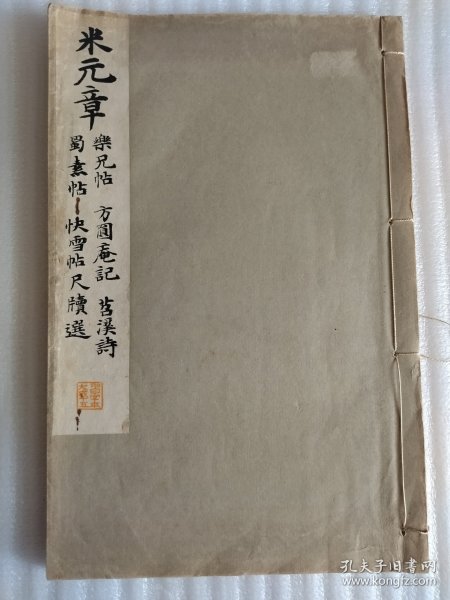 米元章
樂兄帖 方圓庵記 苕溪詩
蜀素帖 快雪帖尺牘選
孔夫子旧书网
www.kongfz.com